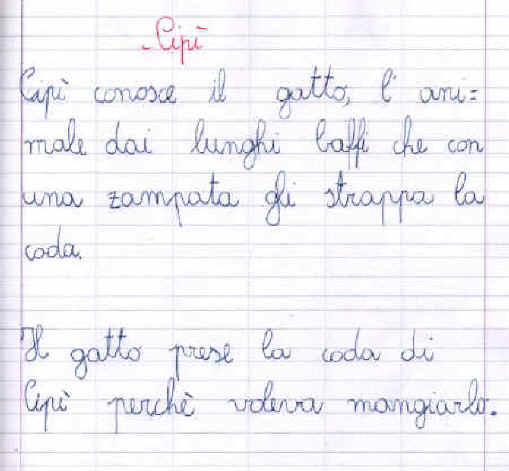 Cipì
Cipì conosce il gatto, l' ani=
male dai lunghi baffi che con
una zampata gli strappa la
coda.
Il gatto prese la coda di
Cipì perchè voleva mangiarlo.